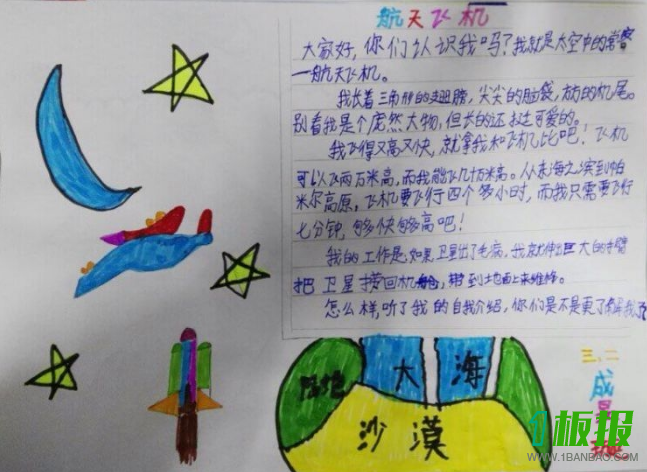 航天飞机
大家好,你们认识我吗?我就是太空中的常客
一航天飞机。
我长着三角形的翅膀,尖尖的脑袋,方方的机尾。
别看我是个庞然大物,但长的还挺可爱的。
我飞得又高又快,就拿我和飞机比吧!飞机
可以飞两万米高,而我能飞几十万米高。从东海之滨到帕
米尔高原,飞机要飞行四个多小时,而我只需要飞行
七分钟,够快够高吧!
我的工作是,如果卫星出了毛病,我就伸出巨大的手臂
把卫星捞回机舱,带到地面上来维修。
怎么样,听了我的自我介绍,你们是不是更了解我了
陆地
大海
沙漠
三、二
成
1板报
WWW.1BANBAO.COM